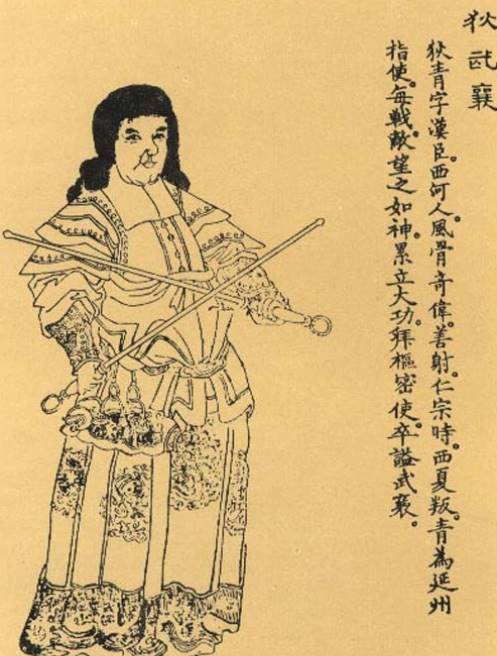 狄武襄
狄青字漢臣。西河人。風骨奇偉。善射。仁宗時。西夏叛。青為延州
指使。每戰。敵望之如神。累立大功。拜樞密使。卒謚武襄。